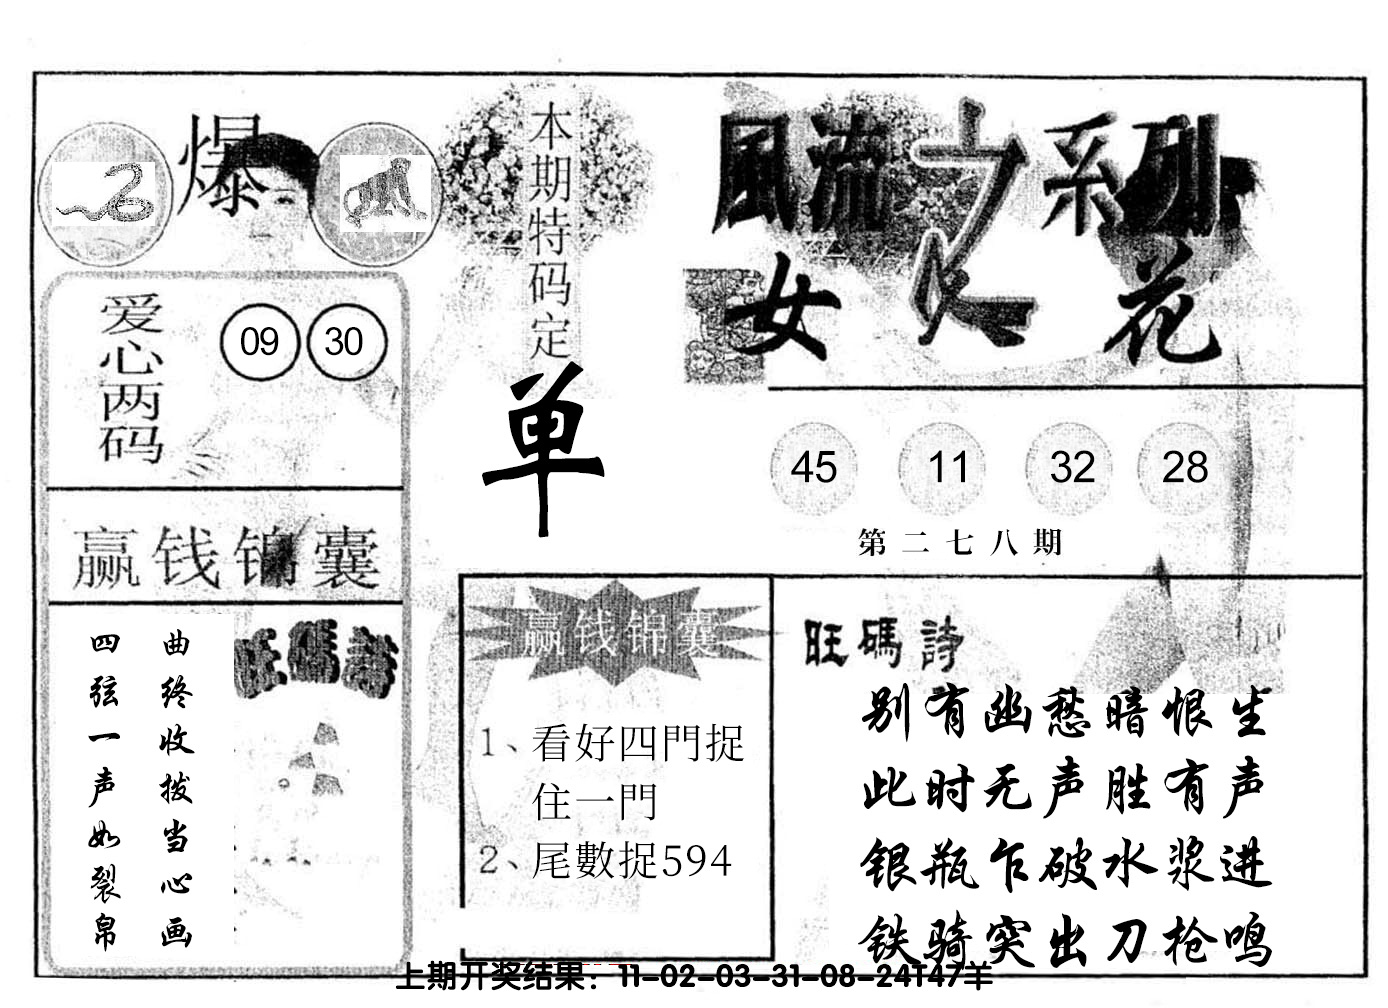 爆
本期特码定
单
風流之系列
女人花
爱心两码
09 30
45 11 32 28
第二七八期
赢钱锦囊
曲终收拨当心画
四弦一声如裂帛
旺碼詩
赢钱锦囊
1、看好四門捉
住一門
2、尾數捉594
旺碼詩
别有幽愁暗恨生
此时无声胜有声
银瓶乍破水浆迸
铁骑突出刀枪鸣
上期开奖结果：11-02-03-31-08-24T47羊